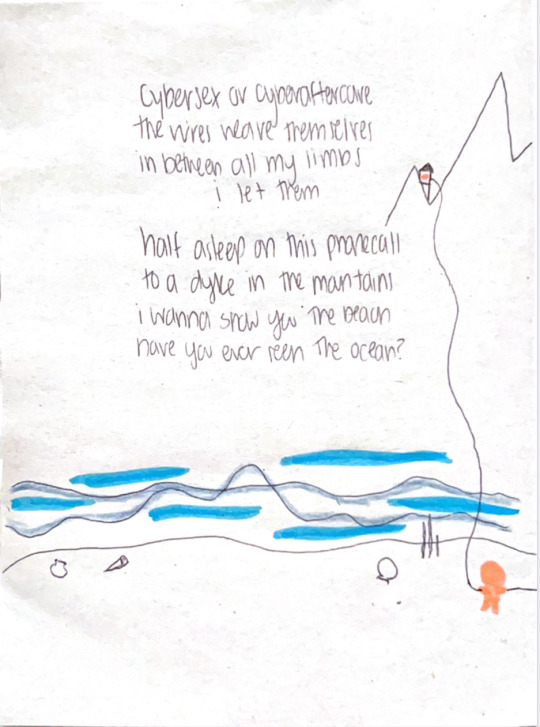 Cybersex or cyberaftercare
the wires weave themselves
in between all my limbs
i let them
half asleep on this phonecall
to a dyke in the mantains
i wanna show you the beach
have you ever seen the ocean?